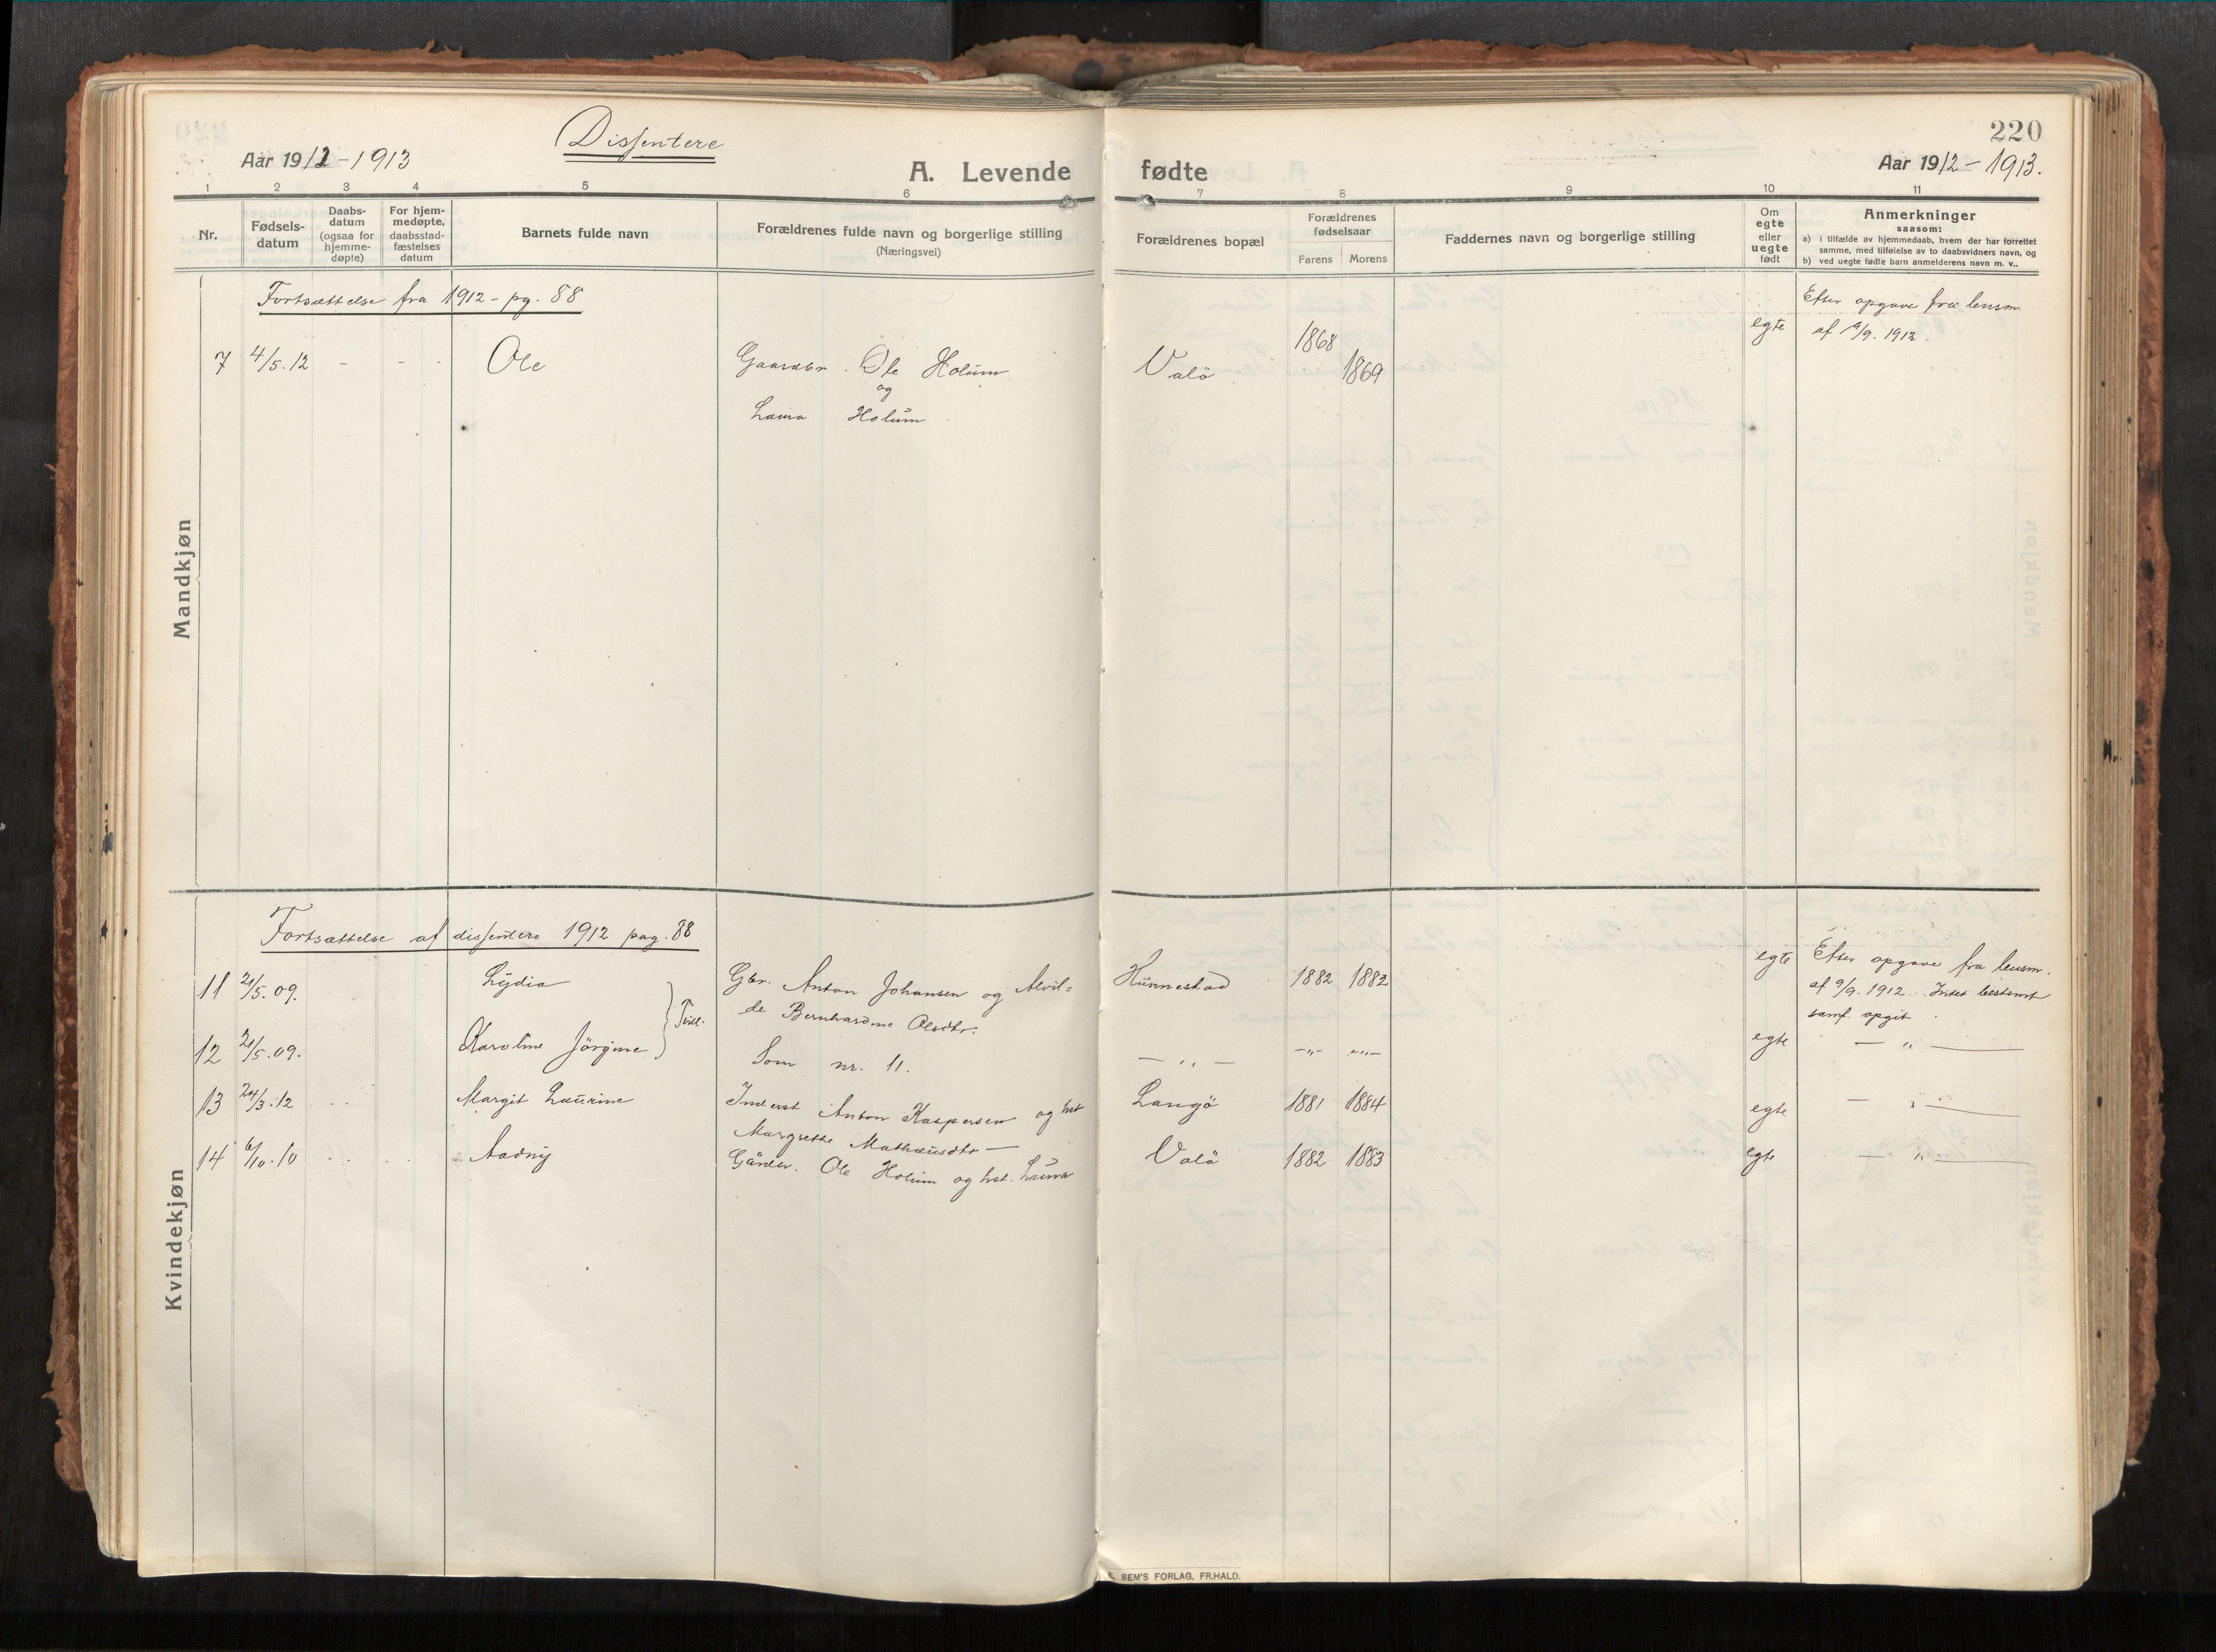 Dissentere
220
Aar 1912-1913
A. Levende
fødte
Aar 1912-1913.
1 2 3 4 5 6 7 8 9 10 11
Nr.
Fødsels-
datum
Daabs-
datum
(ogsaa for
hjemme-
døpte)
For hjem-
medøpte,
daabsstad-
fæstelses
datum
Barnets fulde navn
Forældrenes fulde navn og borgerlige stilling
(Næringsvei)
Forældrenes bopæl
Forældrenes
fødselsaar
Farens Morens
Faddernes navn og borgerlige stilling
Om
egte
eller
uegte
født
Anmerkninger
saasom:
a) i tilfælde av hjemmedaab, hvem der har forrettet
samme, med tilføielse av to daabsvidners navn, og
b) ved uegte fødte barn anmelderens navn m. v..
Mandkjøn
Fortsættelse fra 1912 - pg. 88
7 4/5.12 - - - Ole Gaardbr. Ole Holum
og
Laura Holum
Valö 1868 1869 egte
Efter opgave fra lensm.
af 9/9. 1912.
Kvindekjøn
Fortsættelse af dissentere 1912 pag. 88
11 21/5.09. Lydia Gbr. Anton Johansen og Alvil=
de Bernhardine Olsdtr.
Hunnestad 1882 1882 egte
Efter opgave fra lensm.
af 9/9. 1912. Intet bestemt
samf. opgit.
Tvill.
12 21/5.09. Karoline Jörgine Som nr. 11. — „ — -„- -„- egte — „ —
13 24/3.12 Margit Laurine Inderst Anton Kaspersen og hst
Margrethe Mathæusdtr —
Langö 1881 1884 egte — „ —
14 6/10.10 Aadny Gårdbr. Ole Holum og hst. Laura Valö 1882 1883 egte — „ —
SEM'S FORLAG, FR.HALD.